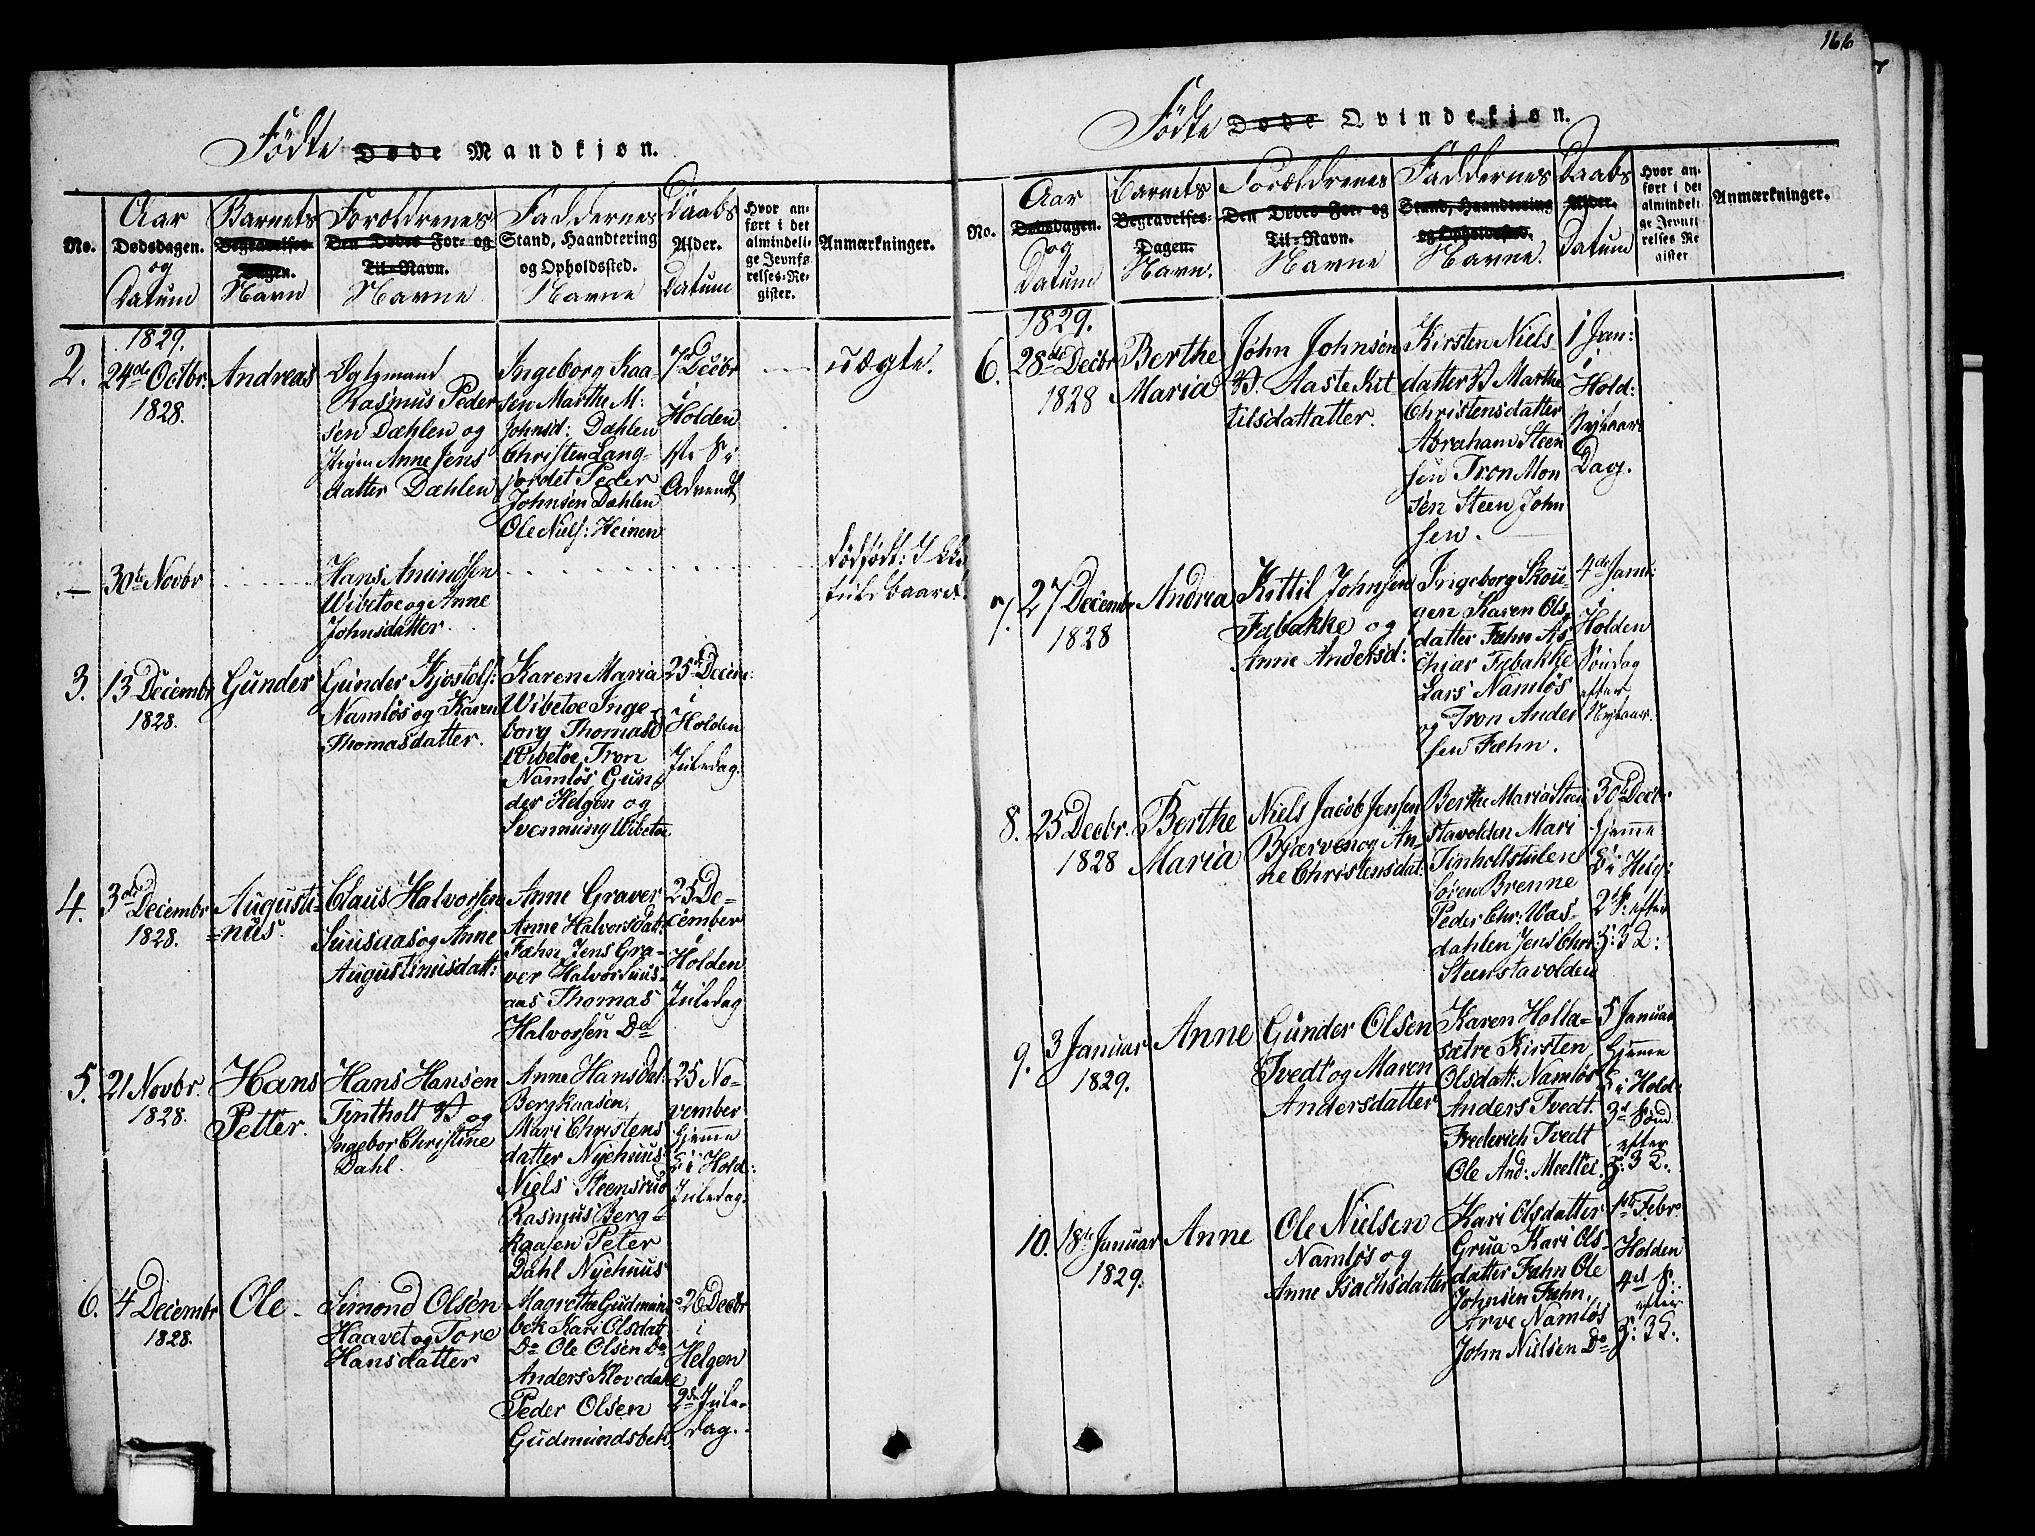 166
Födte Døde Mandkjøn.
No.
Aar
Dødsdagen.
og
Datum
Barnets
Begravelses-
Dagen.
Navn
Forældrenes
Den Dødes For- og
Til-Navn.
Navne
Faddernes
Stand, Haandtering
og Opholdssted.
Navne
Daabs
Alder.
Datum
Hvor an-
ført i det
almindeli-
ge Jevnfø-
relses-Re-
gister.
Anmærkninger.
1829.
2.
24de Octbr.
1828.
Andreas
Rasmus Peder
sen Dæhlen og
Pigen Anne Jens
datter Dæhlen
Ingeborg Kaa-
sen Marthe M:
Johnsd: Dæhlen
Christen Lang-
jordet Peder
Johnsen Dæhlen
Ole Niels: Heinen
7d Decbr
i
Holden
Advent
uægte.
—
30te Novbr
Hans Amundsen
Wibetoe og Anne
Johnsdatter.
dødfødt:
3.
13 Decembr
1828.
Gunder
Gunder Kjostolfs:
Namløs og Karen
Thomasdatter.
Karen Maria
Wibetoe Inge-
borg Thomasd
Wibetoe, Tron
Namløs Gun-
der Helgen og
Svennung Wibetoe
25 Decem:
i
Holden
Juledag.
4.
3de Decembr
1828.
Augusti-
=nus.
Claus Halvorsen
Suusaas og Anne
Augustinusdatt:
Anne Graver
Anne Halvorsdatt:
Fæhn Jens Gra-
ver Halvor Suus-
aas Thomas
Halvorsen Do
25 De-
cember
i
Holden
Juledag
5.
21 Novbr.
1828.
Hans
Petter.
Hans Hansen
Tintholt og
Ingebor Christine
Dahl.
Anne Hansdat:
Bergkaasen,
Mari Christens
datter Nyehuus
Niels Steensrud
Rasmus Berg-
kaasen Peter
Dahl Nyehuus
25 No-
vember
hjemme
i Hold:
Juledag.
6.
4 Decembr
1828.
Ole
Simond Olsen
Haavet og Tore
Hansdatter
Magrethe Gudmunds
bek Kari Olsdatt:
Do Ole Olsen Do
Anders Klovedahl
Peder Olsen
Gudmundsbek
26 Decbr
i
Helgen
2d Jule-
dag.
Födte Døde Qvindekjøn.
No.
Aar
Dødsdagen.
og
Datum
Barnets
Begravelses-
Dagen.
Navn.
Forældrenes
Den Dødes For- og
Til-Navn.
Navne
Faddernes
Stand, Haandtering
og Opholdssted.
Navne.
Daabs
Alder.
Datum
Hvor an-
ført i det
almindeli-
ge Jevnfø-
relses Re
gister
Anmærkninger.
1829.
6.
28de Decbr
1828
Berthe
Maria
John Johnsen
Aaste Kit
tilsdattatter.
Kirsten Niels
datter Marthe
Christensdatter
Abraham Steen
sen Tron Mon
sen Steen John
sen.
1 Jan:
i
Hold:
Nytaars
Dag.
7.
27 Decembr
1828
Andrea
Kittil Johnsen
Febakke og
Anne Andersd:
Ingeborg Skou-
gen Karen Ols-
datter Fæhn As-
chjar Febakke
Lars Namløs
og Tron Ander
sen Fæhn.
4de Janu:
i
Holden
Søndag
efter
Nytaar.
8.
25 Decbr.
1828
Berthe
Maria
Niels Jacob Jensen
Bjærven og An-
ne Christensdat:
Berthe Maria Steen
stavolden Mari
Tinholtstulen
Søren Brenne
Peder Chr: Was-
dahlen Jens Chr:
Steenstavolden
30 Decbr
hjemme
i Helg:
2d S: efter
H: 3 K:
9.
3 Januar
1829.
Anne
Gunder Olsen
Tvedt og Maren
Andersdatter
Karen Holla-
sætre Kirsten
Olsdatt: Namløs
Anders Tvedt
Frederich Tvedt
Ole And: Moeltes.
5 Januar
hjemme
i Hold:
3d Sönd
efter
H: 3 K:
10.
18de Januar
1829.
Anne
Ole Nielsen
Namløs og
Anne Isachsdatter
Kari Olsdatter
Grua Kari Ols-
datter Fæhn Ole
Johnsen Fæhn,
Arve Namløs
John Nielsen Do
1ste Febr.
Holden
4d S:
efter
H: 3 K: